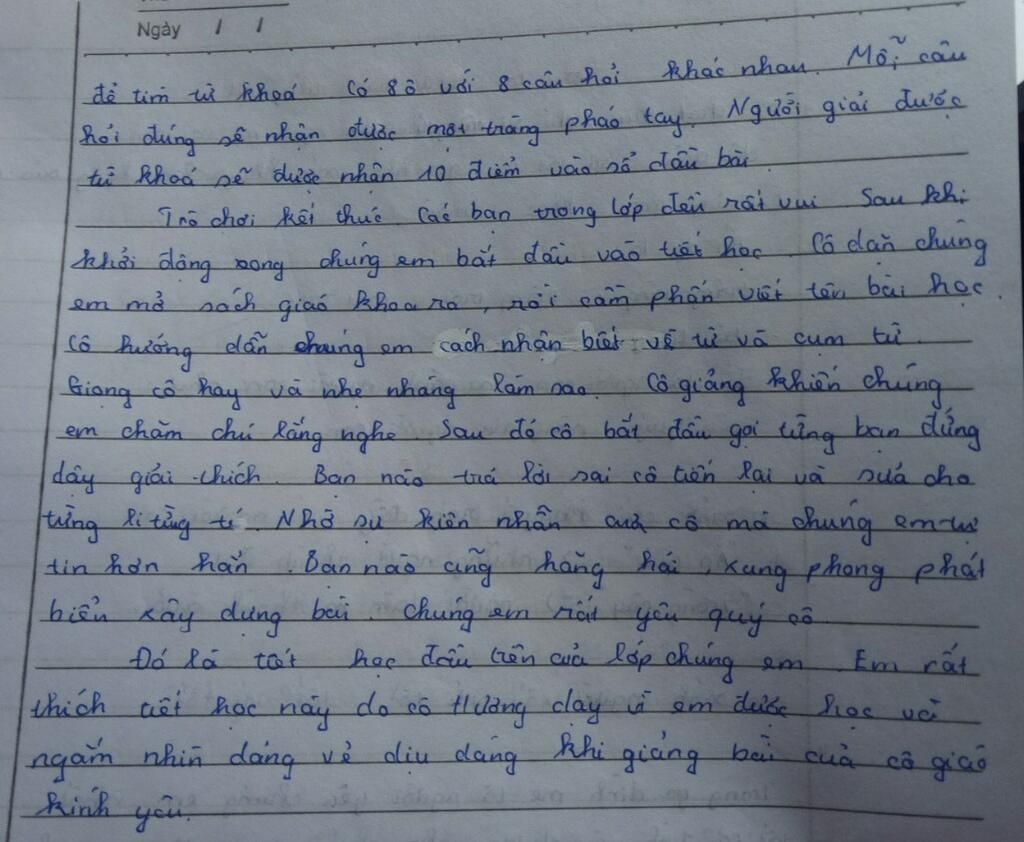 Ngày / /
để tìm từ khoá Có 8 ô với 8 câu hỏi khác nhau. Mỗi câu
hỏi đúng sẽ nhận được một tràng pháo tay. Người giải được
từ khoá sẽ được nhận 10 điểm vào sổ đầu bài
Trò chơi kết thúc Các bạn trong lớp đều rất vui Sau khi
khởi động xong chúng em bắt đầu vào tiết học. Cô dặn chúng
em mở sách giáo khoa ra, rồi cầm phấn viết tên bài học.
Cô hướng dẫn chúng em cách nhận biết về từ và cụm từ.
Giọng cô hay và nhẹ nhàng làm sao. Cô giảng khiến chúng
em chăm chú lắng nghe. Sau đó cô bắt đầu gọi từng bạn đứng
dậy giải thích. Bạn nào trả lời sai cô tiến lại và sửa cho
từng li từng tí. Nhờ sự kiên nhẫn của cô mà chúng em tự
tin hơn hẳn. Bạn nào cũng hăng hái, xung phong phát
biển xây dựng bài. Chúng em rất yêu quý cô
Đó là tiết học đầu trên của lớp chúng em. Em rất
thích tiết học này do cô Hương dạy vì em được học và
ngắm nhìn dáng vẻ dịu dàng khi giảng bài của cô giáo
kính yêu.